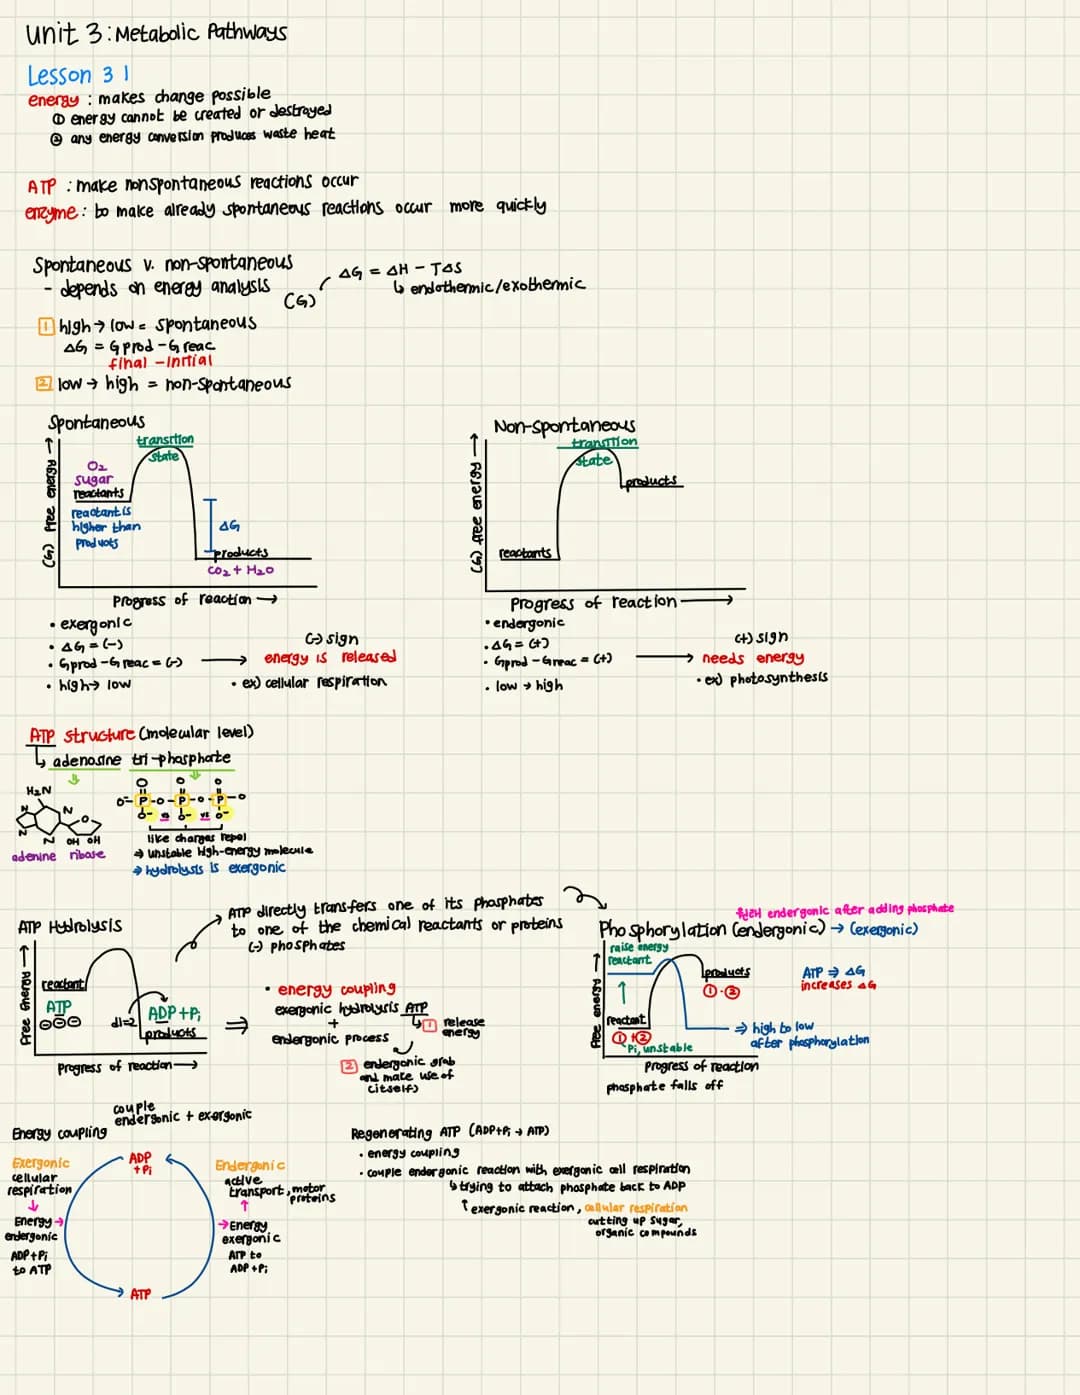 Unit 3: Metabolic Pathways
Lesson 3 1
energy : makes change possible
① energy cannot be created or destrayed
② any energy conversion produces waste heat
ATP : make nonspontaneous reactions occur
enzyme : to make already spontaneous reactions occur more quickly
Spontaneous v. non-spontaneous
- depends on energy analysis (G)
ΔG = ΔH - TΔS
↳ endothermic/exothermic
1 high → low = spontaneous
ΔG = Gprod - Greac
final - initial
2 low → high = non-spontaneous
Spontaneous
(G) free energy →
transition
state
O2
sugar
reactants
reactant is
higher than
products
ΔG
products
CO2 + H2O
Progress of reaction →
• exergonic
• ΔG = (-)
• Gprod - Greac = (-) →
• high → low
(-) sign
energy is released
• ex) cellular respiration
Non-spontaneous
(G) free energy →
transition
state
products
reactants
Progress of reaction →
• endergonic
• ΔG = (+)
• Gprod - Greac = (+) →
• low → high
(+) sign
needs energy
• ex) photosynthesis
ATP structure (molecular level)
↳ adenosine tri-phosphate
H2N
N
N
N
N
O
OH OH
adenine ribose
O O O
O- P - O - P - O - P - O
O- vs O- vs O-
like charges repel
→ unstable high-energy molecule
→ hydrolysis is exergonic
ATP Hydrolysis
Free Energy →
reactant
ATP
⊖⊖⊖
ADP + Pi
products
Progress of reaction →
ATP directly transfers one of its phosphates
to one of the chemical reactants or proteins
(-) phosphates
• energy coupling
exergonic hydrolysis ATP
↳ 1 release
energy
+
endergonic process
2 endergonic grab
and make use of
(itself)
endergonic after adding phosphate
Phosphorylation (endergonic) → (exergonic)
free energy →
raise energy
reactant
products
① - ②
reactant
① + ②
Pi, unstable
ATP ⇒ ΔG
increases ΔG
⇒ high to low
after phosphorylation
Progress of reaction
phosphate falls off
couple
endergonic + exergonic
Energy coupling
Exergonic
cellular
respiration
↓
Energy →
endergonic
ADP + Pi
to ATP
ADP
+ Pi
ATP
Endergonic
active
transport, motor
proteins
↑
→ Energy
exergonic
ATP to
ADP + Pi
Regenerating ATP (ADP+Pi → ATP)
• energy coupling
• couple endergonic reaction with exergonic cell respiration
↳ trying to attach phosphate back to ADP
↑ exergonic reaction, cellular respiration
cutting up sugar,
organic compounds